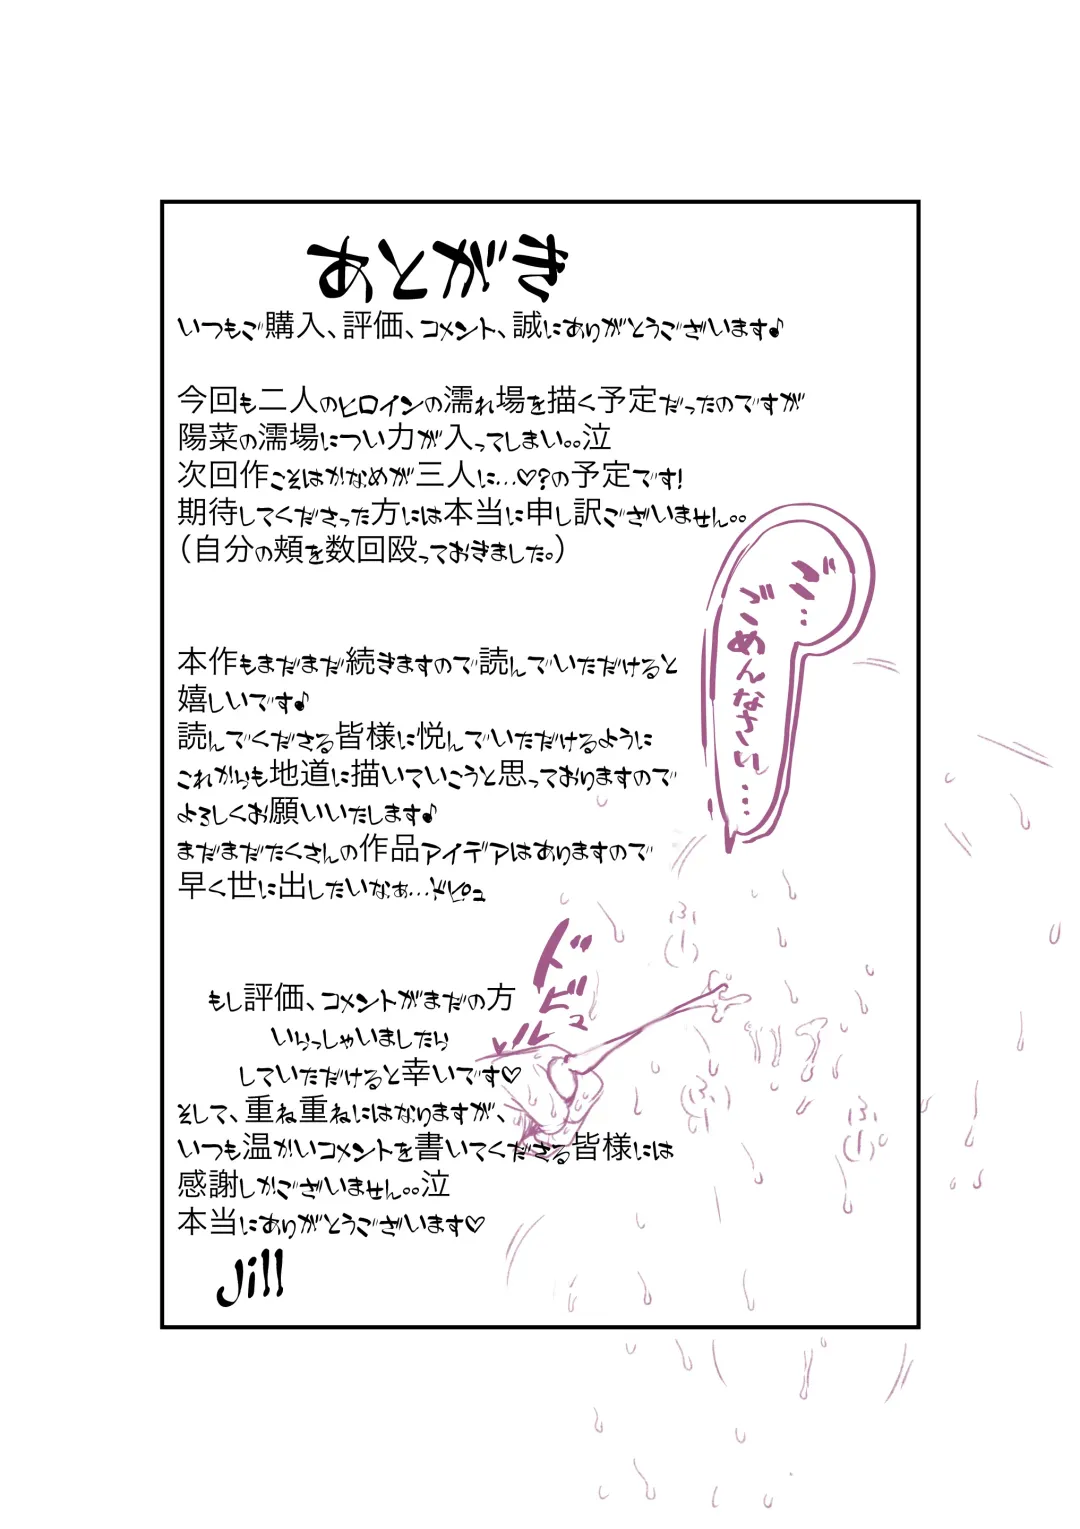 あとがき
いつもご購入、評価、コメント、誠にありがとうございます♪
今回も二人のヒロインの濡れ場を描く予定だったのですが
陽菜の濡場につい力が入ってしまい。。泣
次回作こそはかなめが三人に…♡?の予定です!
期待してくださった方には本当に申し訳ございません。。
(自分の頬を数回殴っておきました。)
ご…
ごめんなさい…
本作もまだまだ続きますので読んでいただけると
嬉しいです♪
読んでくださる皆様に悦んでいただけるように
これからも地道に描いていこうと思っておりますので
よろしくお願いいたします♪
まだまだたくさんの作品アイデアはありますので
早く世に出したいなぁ…ドピュ
ドピュ
ふーっ
もし評価、コメントがまだの方
いらっしゃいましたら
していただけると幸いです♡
そして、重ね重ねにはなりますが、
いつも温かいコメントを書いてくださる皆様には
感謝しかございません。。泣
本当にありがとうございます♡
Jill